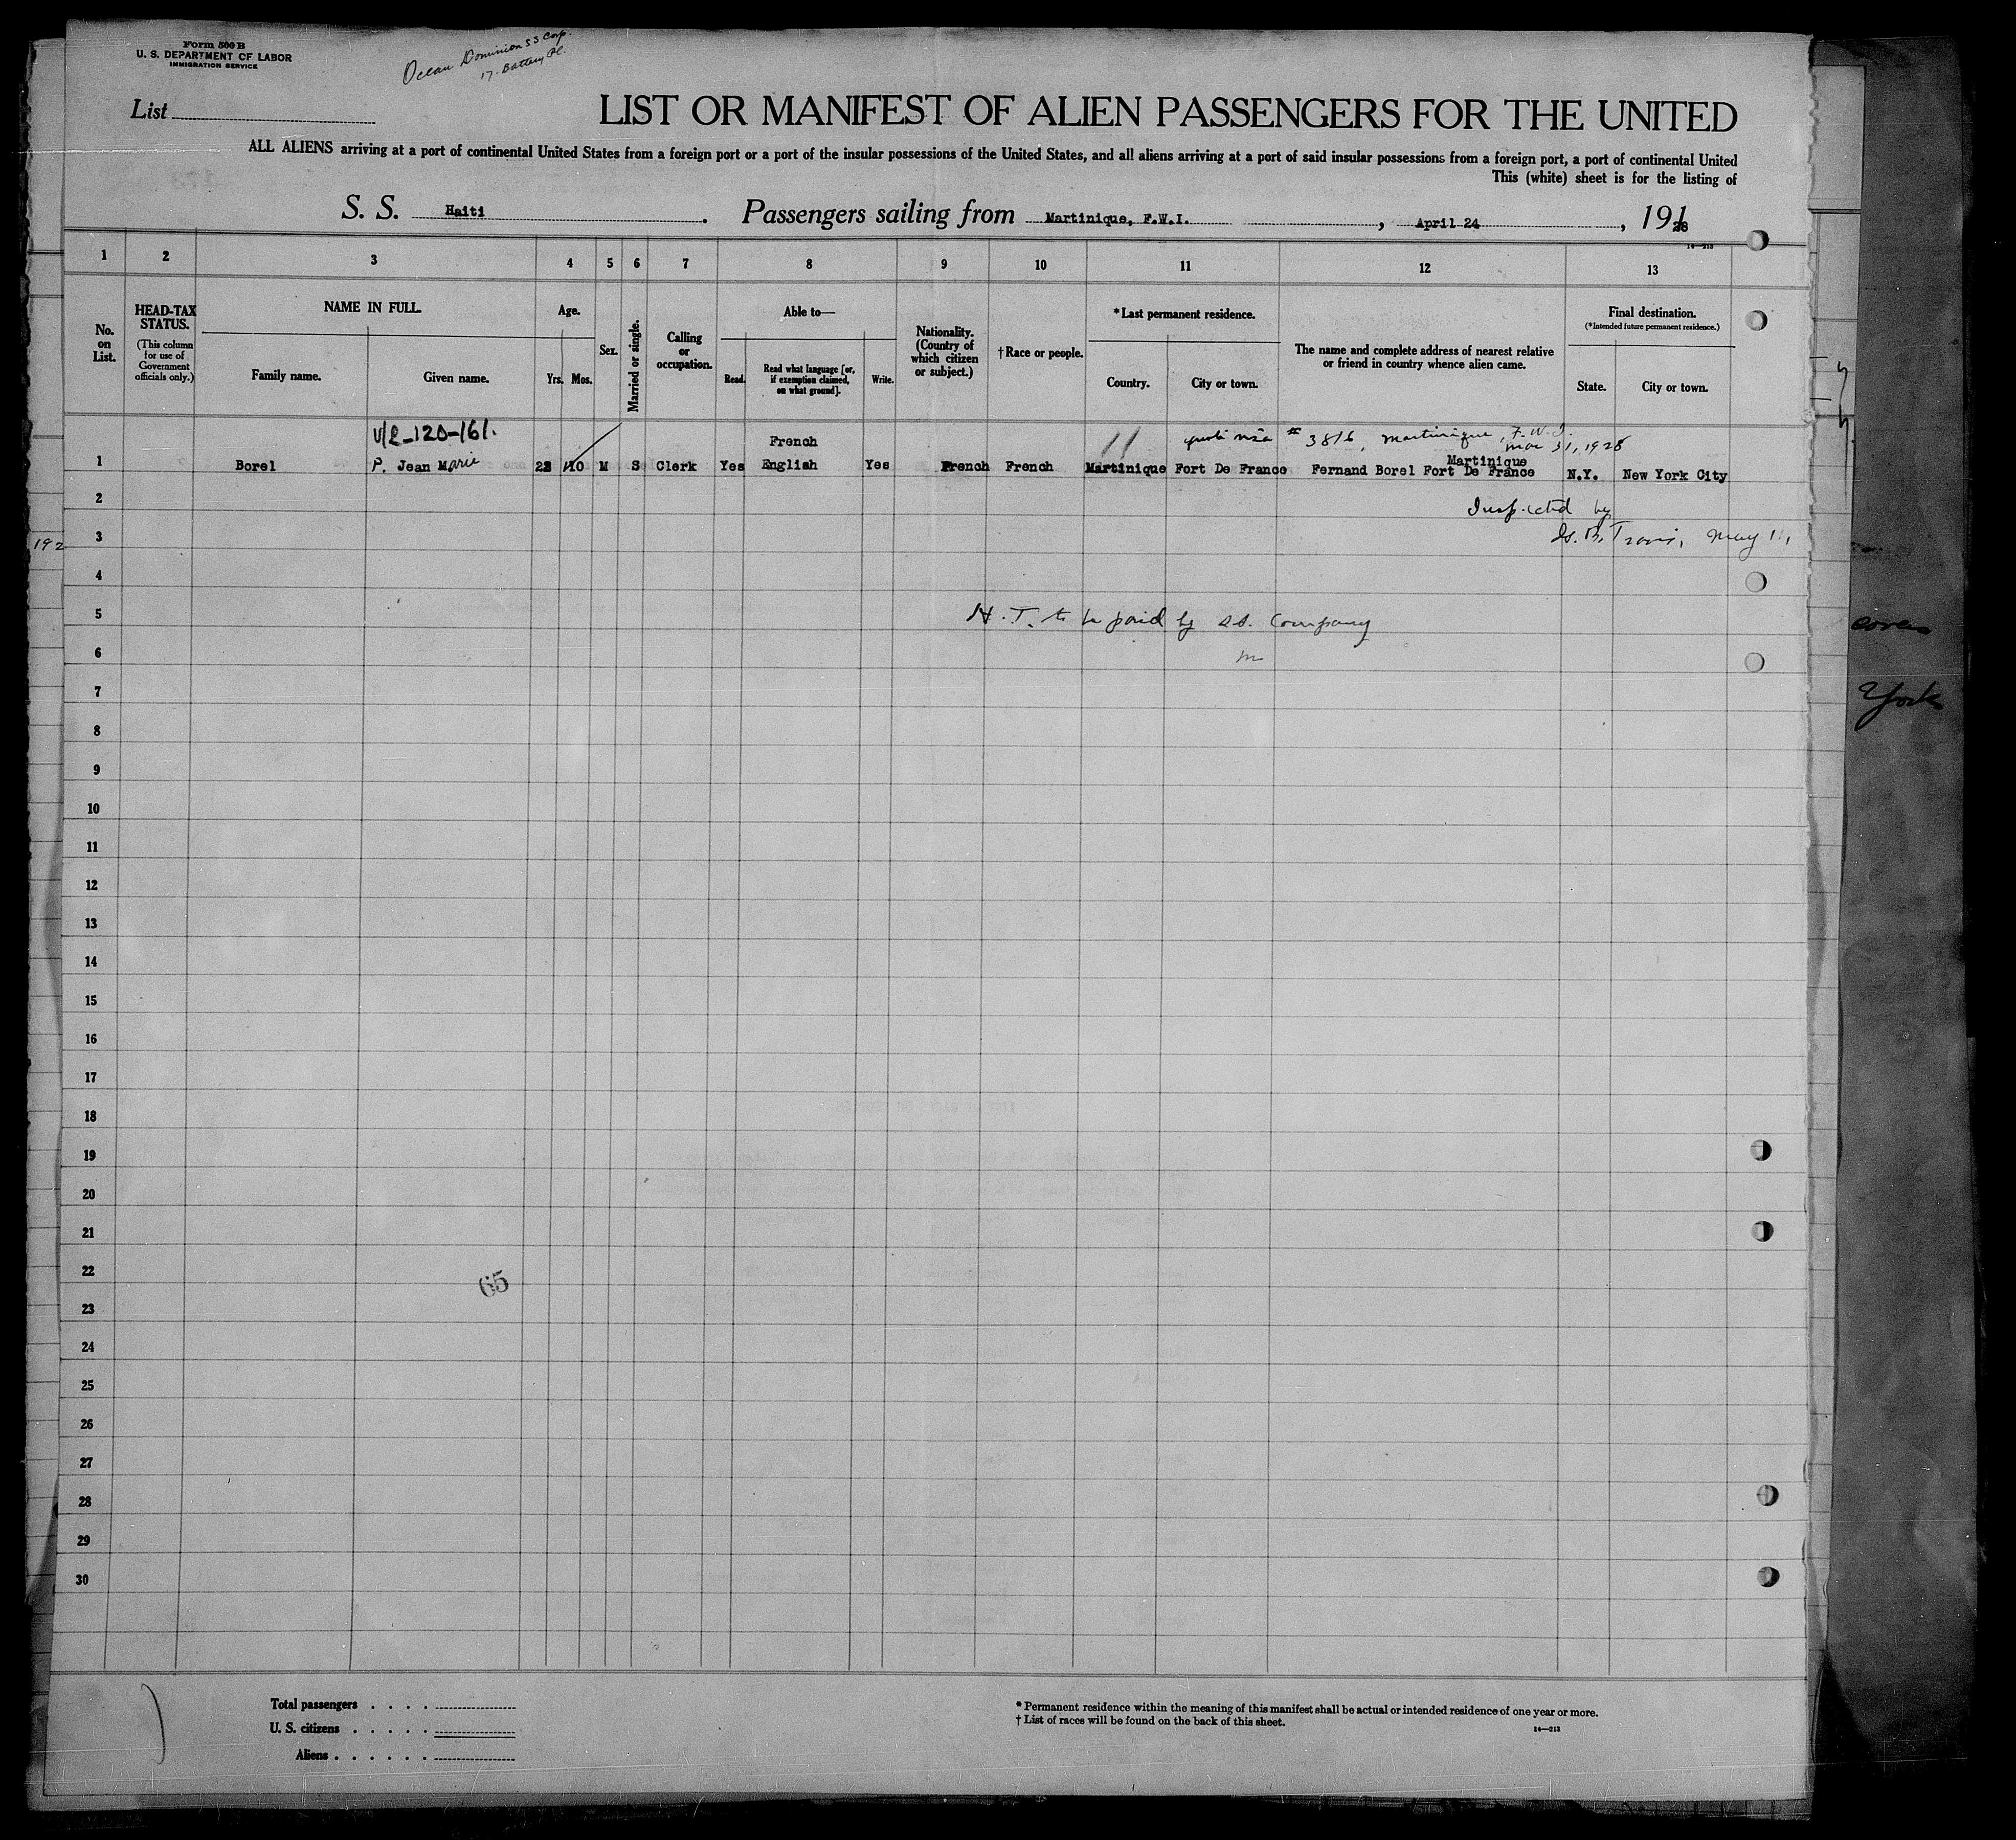 Form 500 B
U. S. DEPARTMENT OF LABOR
IMMIGRATION SERVICE
Ocean Dominion SS Corp.
17. Battery Pl.
List
LIST OR MANIFEST OF ALIEN PASSENGERS FOR THE UNITED
ALL ALIENS arriving at a port of continental United States from a foreign port or a port of the insular possessions of the United States, and all aliens arriving at a port of said insular possessions from a foreign port, a port of continental United
This (white) sheet is for the listing of
S. S. Haiti. Passengers sailing from Martinique, F.W.I., April 24, 191 28
14—213
1 2 3 4 5 6 7 8 9 10 11 12 13
No. on List.
HEAD-TAX STATUS.
(This column for use of Government officials only.)
NAME IN FULL.
Family name. Given name.
Age.
Yrs. Mos.
Sex.
Married or single.
Calling or occupation.
Able to—
Read.
Read what language [or, if exemption claimed, on what ground].
Write.
Nationality. (Country of which citizen or subject.)
†Race or people.
*Last permanent residence.
Country. City or town.
The name and complete address of nearest relative or friend in country whence alien came.
Final destination.
(*Intended future permanent residence.)
State. City or town.
V/2-120-161.
11 quota visa # 3816, Martinique, F.W.I.
Mar 31, 1928
French
Martinique
1 Borel P. Jean Marie 10 M S Clerk Yes English Yes French French Martinique Fort De France Fernand Borel Fort De France N.Y. New York City
2
Inspected by
3
Travis, May 11,
192
4
5
H.T. to be paid by SS. Company
cover
6
7
York
8
9
10
11
12
13
14
15
16
17
18
19
20
21
22
65
23
24
25
26
27
28
29
30
Total passengers
U. S. citizens
Aliens
* Permanent residence within the meaning of this manifest shall be actual or intended residence of one year or more.
† List of races will be found on the back of this sheet.
14—213